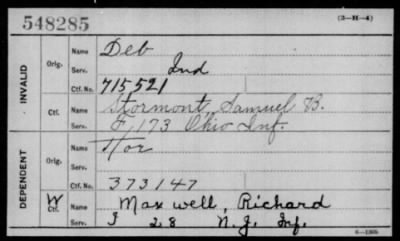 548285 (3-M-4)
INVALID
Orig. Name Deb
Serv. Ind
Ctf. No. 715521
Ctf. Name Stormont, Samuel B.
Serv. F, 173 Ohio Inf.
DEPENDENT
Orig. Name
Serv.
Ctf. No. 373147
W Ctf. Name Maxwell, Richard
Serv. I 28 N.J. Inf.